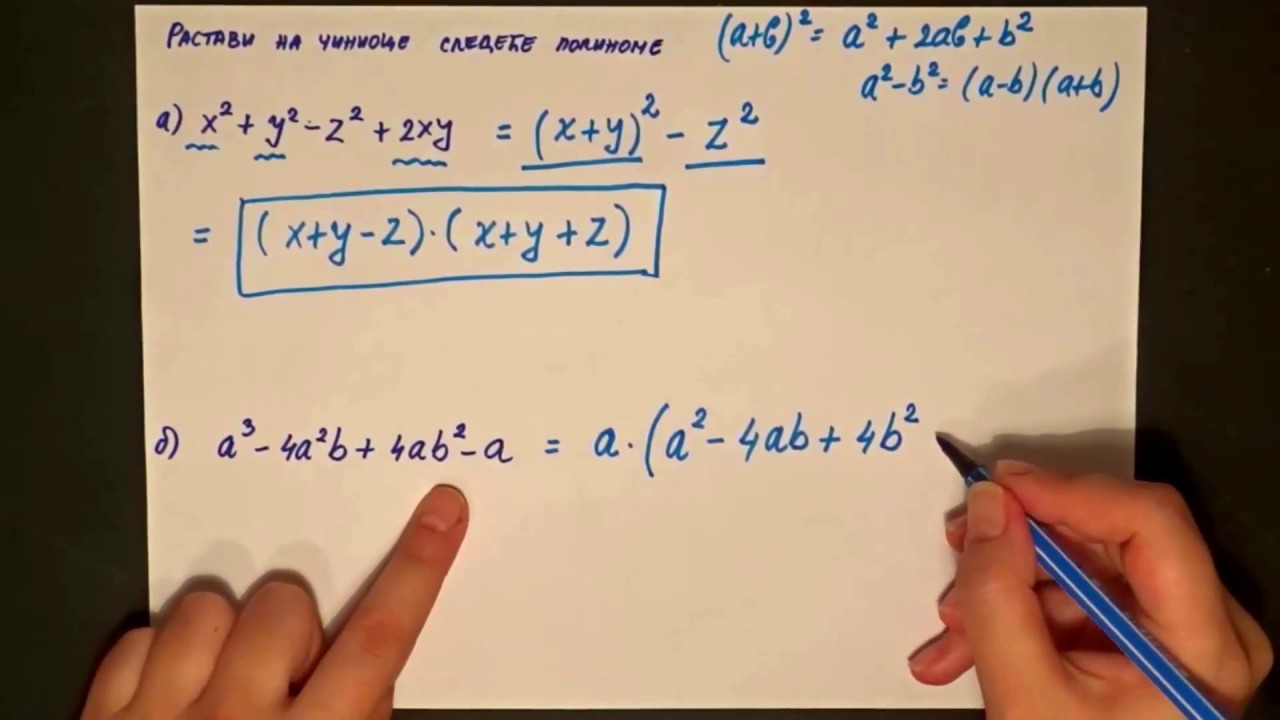 Растави на чиниоце следеће полиноме
(a+b)² = a² + 2ab + b²
a² - b² = (a-b)(a+b)
а) x² + y² - z² + 2xy = (x+y)² - z²
= (x+y-z)·(x+y+z)
б) a³ - 4a²b + 4ab² - a = a·(a² - 4ab + 4b²